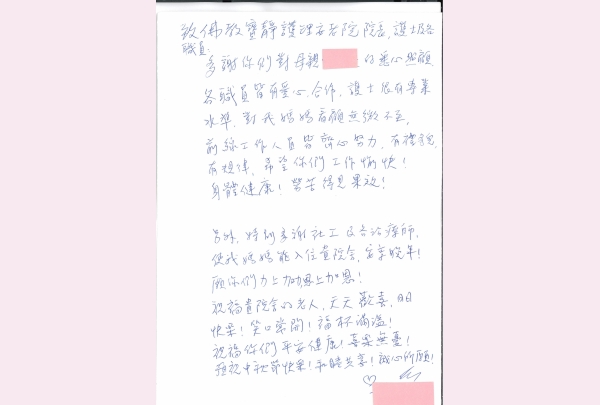 致佛教寶靜護理安老院院長,護士及各
職員:
多謝你們對母親 的悉心照顧
各職員皆有愛心,合作,護士很有專業
水準,對我媽媽看顧無微不至,
前線工作人員皆齊心努力,有禮貌,
有規律,希望你們工作愉快!
身體健康!勞苦得見果效!
另外,特別多謝社工及各治療師,
使我媽媽能入住貴院舍,安享晚年!
願你們力上加力恩上加恩!
祝福貴院舍的老人,天天歡喜,日日
快樂!笑口常開!福杯滿溢!
祝福你們平安健康!喜樂無憂!
預祝中秋節快樂! 共享!誠心所願!